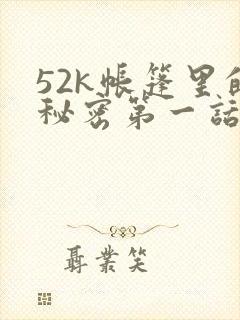 52k帐篷里的
秘密第一話
聶業笑